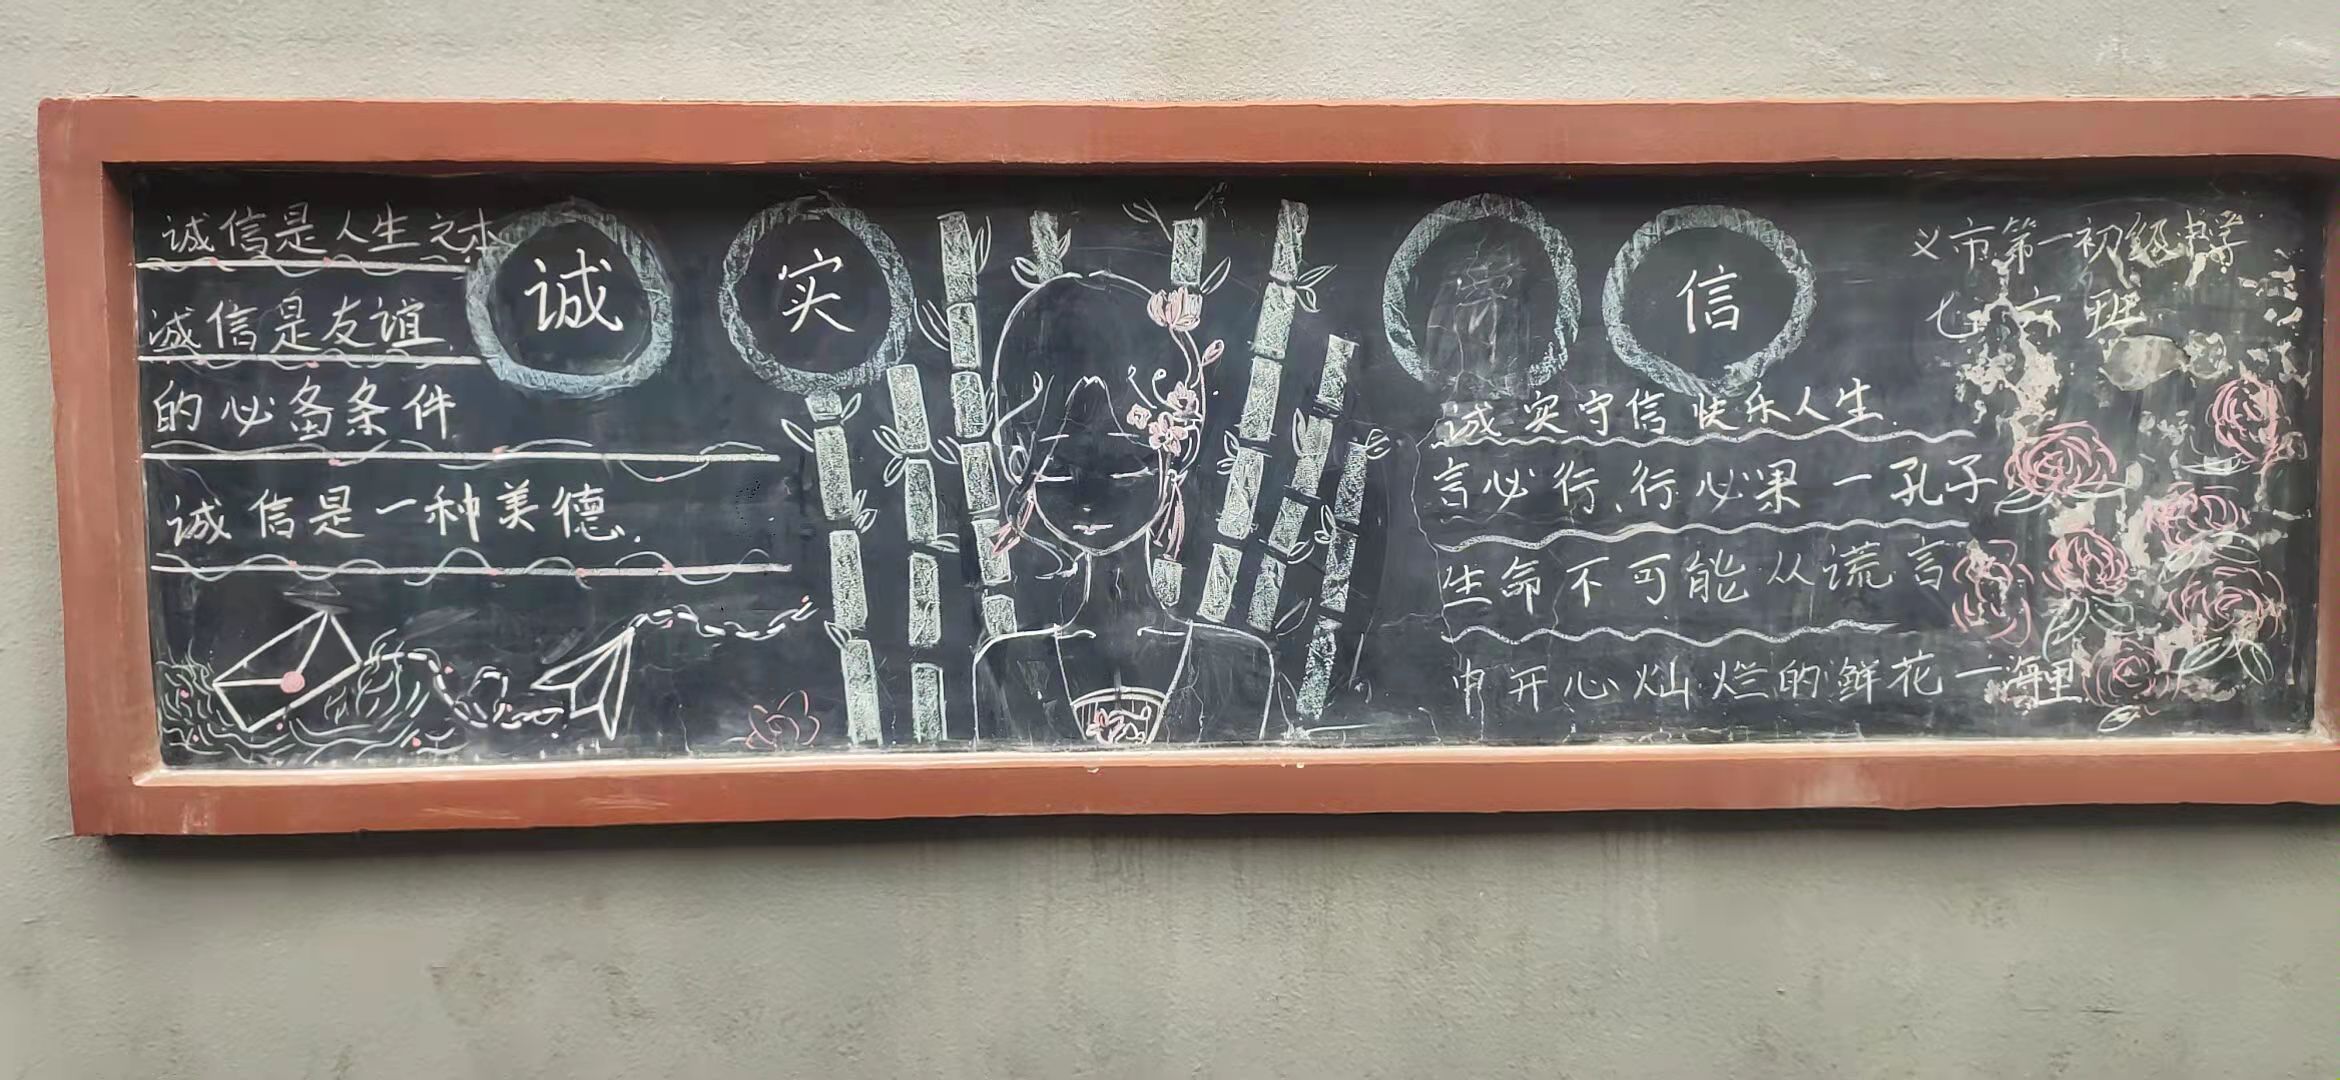 诚信是人生之本
诚信是友谊
的必备条件
诚信是一种美德.
诚 实 信
义市第一初级中学
七 六 班
诚实守信 快乐人生.
言必行,行必果一孔子
生命不可能从谎言
中开心灿烂的鲜花一海里